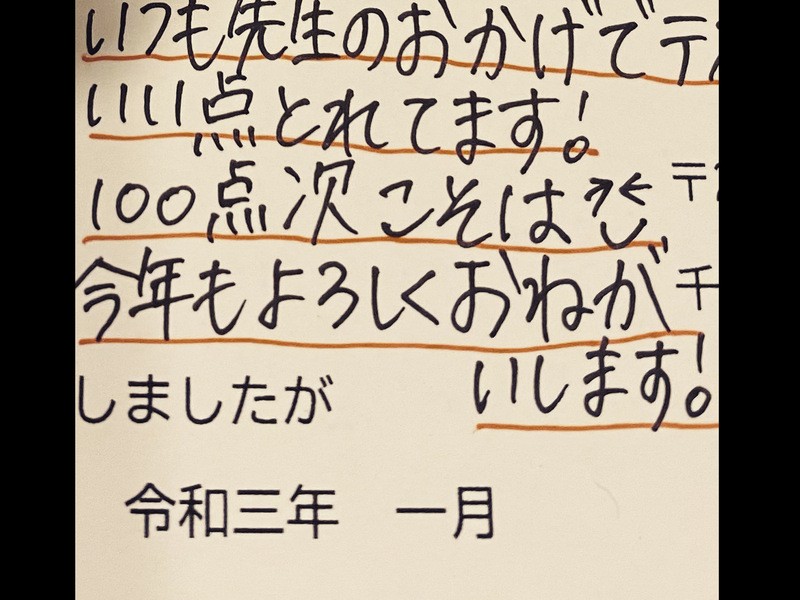 いつも先生のおかげでテ
いい点とれてます!
100点次こそは
〒
今年もよろしくおねが
千
いします!
しましたが
令和三年 一月